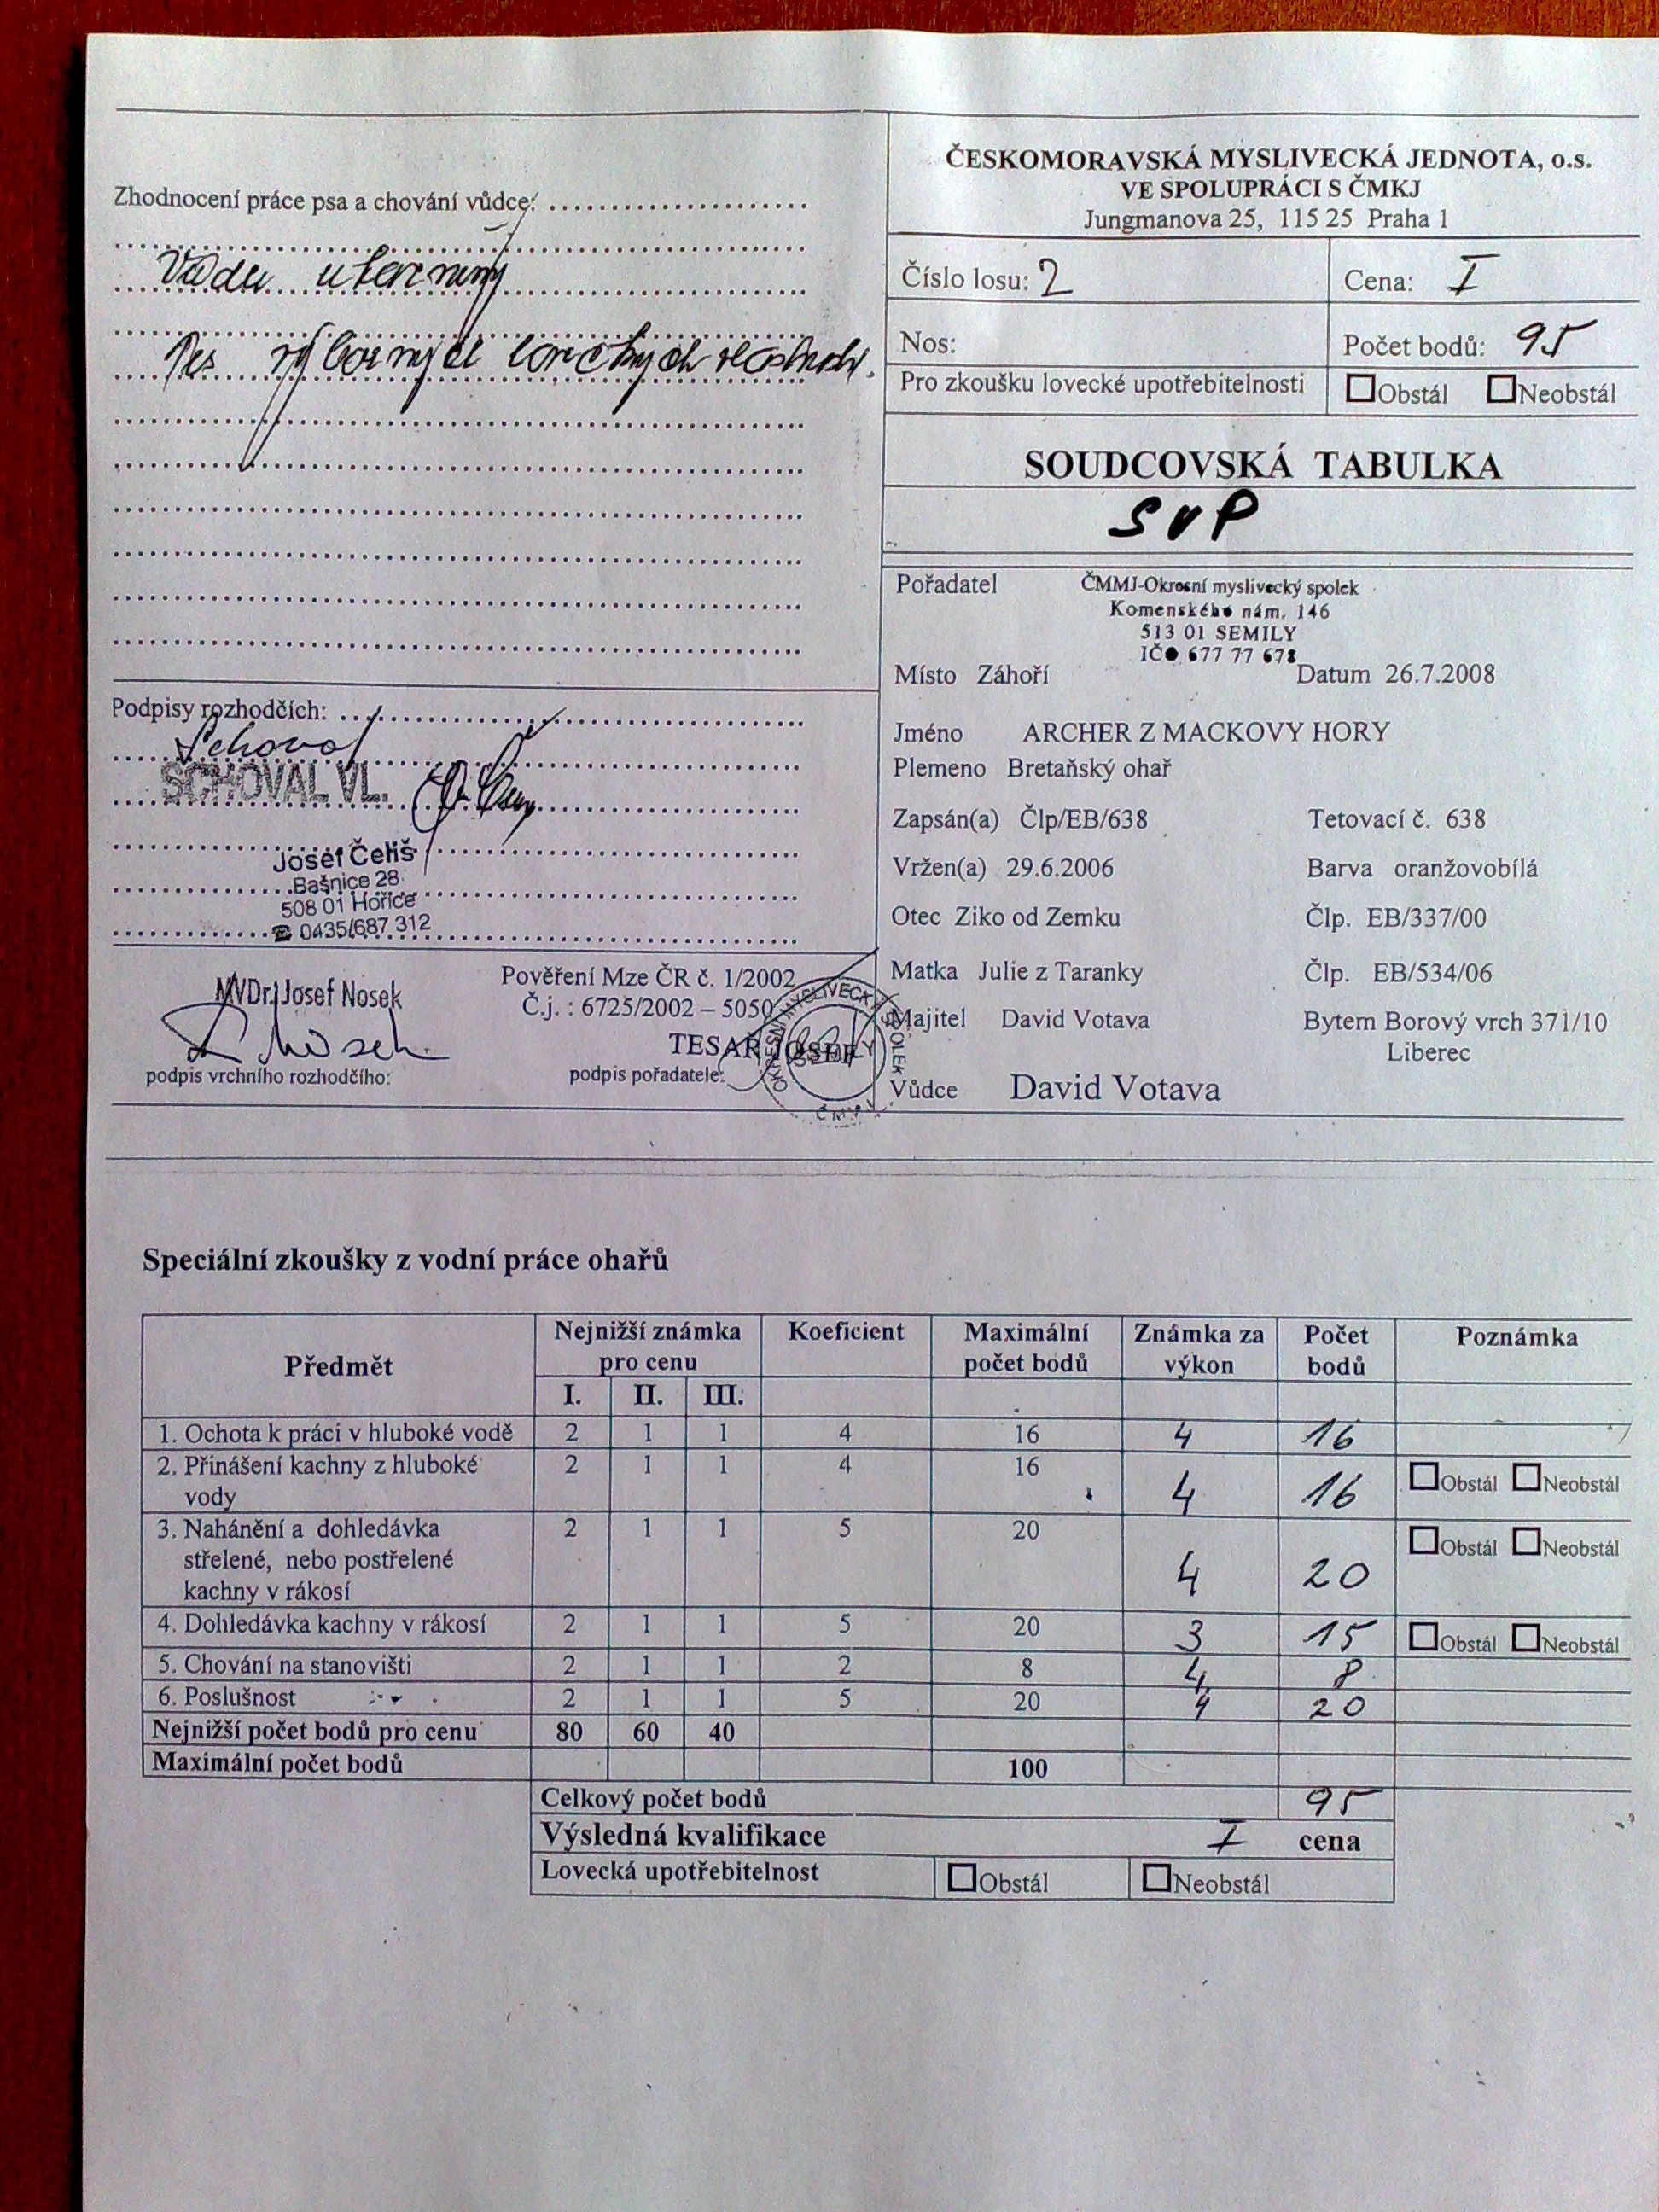 Zhodnocení práce psa a chování vůdce:
Pes výborných loveckých vlastností.
Podpisy rozhodčích:
Schoval
SCHOVAL VL.
Josef Čeliš
Bašnice 28
508 01 Hořice
☎ 0435/687 312
MVDr. Josef Nosek
podpis vrchního rozhodčího:
Pověření Mze ČR č. 1/2002
Č.j. : 6725/2002 – 5050
TESAŘ JOSEF
podpis pořadatele:
OKRESNÍ MYSLIVECKÝ SPOLEK
ČESKOMORAVSKÁ MYSLIVECKÁ JEDNOTA, o.s.
VE SPOLUPRÁCI S ČMKJ
Jungmanova 25, 115 25 Praha 1
Číslo losu: 2 Cena: I
Nos: Počet bodů: 95
Pro zkoušku lovecké upotřebitelnosti Obstál Neobstál
SOUDCOVSKÁ TABULKA
SVP
Pořadatel ČMMJ-Okresní myslivecký spolek
Komenského nám. 146
513 01 SEMILY
IČO 677 77 678
Místo Záhoří Datum 26.7.2008
Jméno ARCHER Z MACKOVY HORY
Plemeno Bretaňský ohař
Zapsán(a) Člp/EB/638 Tetovací č. 638
Vržen(a) 29.6.2006 Barva oranžovobílá
Otec Ziko od Zemku Člp. EB/337/00
Matka Julie z Taranky Člp. EB/534/06
Majitel David Votava Bytem Borový vrch 371/10
Liberec
Vůdce David Votava
Speciální zkoušky z vodní práce ohařů
Předmět Nejnižší známka pro cenu Koeficient Maximální počet bodů Známka za výkon Počet bodů Poznámka
I. II. III.
1. Ochota k práci v hluboké vodě 2 1 1 4 16 4 16
2. Přinášení kachny z hluboké vody 2 1 1 4 16 4 16 Obstál Neobstál
3. Nahánění a dohledávka střelené, nebo postřelené kachny v rákosí 2 1 1 5 20 4 20 Obstál Neobstál
4. Dohledávka kachny v rákosí 2 1 1 5 20 3 15 Obstál Neobstál
5. Chování na stanovišti 2 1 1 2 8 4 8
6. Poslušnost 2 1 1 5 20 4 20
Nejnižší počet bodů pro cenu 80 60 40
Maximální počet bodů 100
Celkový počet bodů 95
Výsledná kvalifikace I cena
Lovecká upotřebitelnost Obstál Neobstál